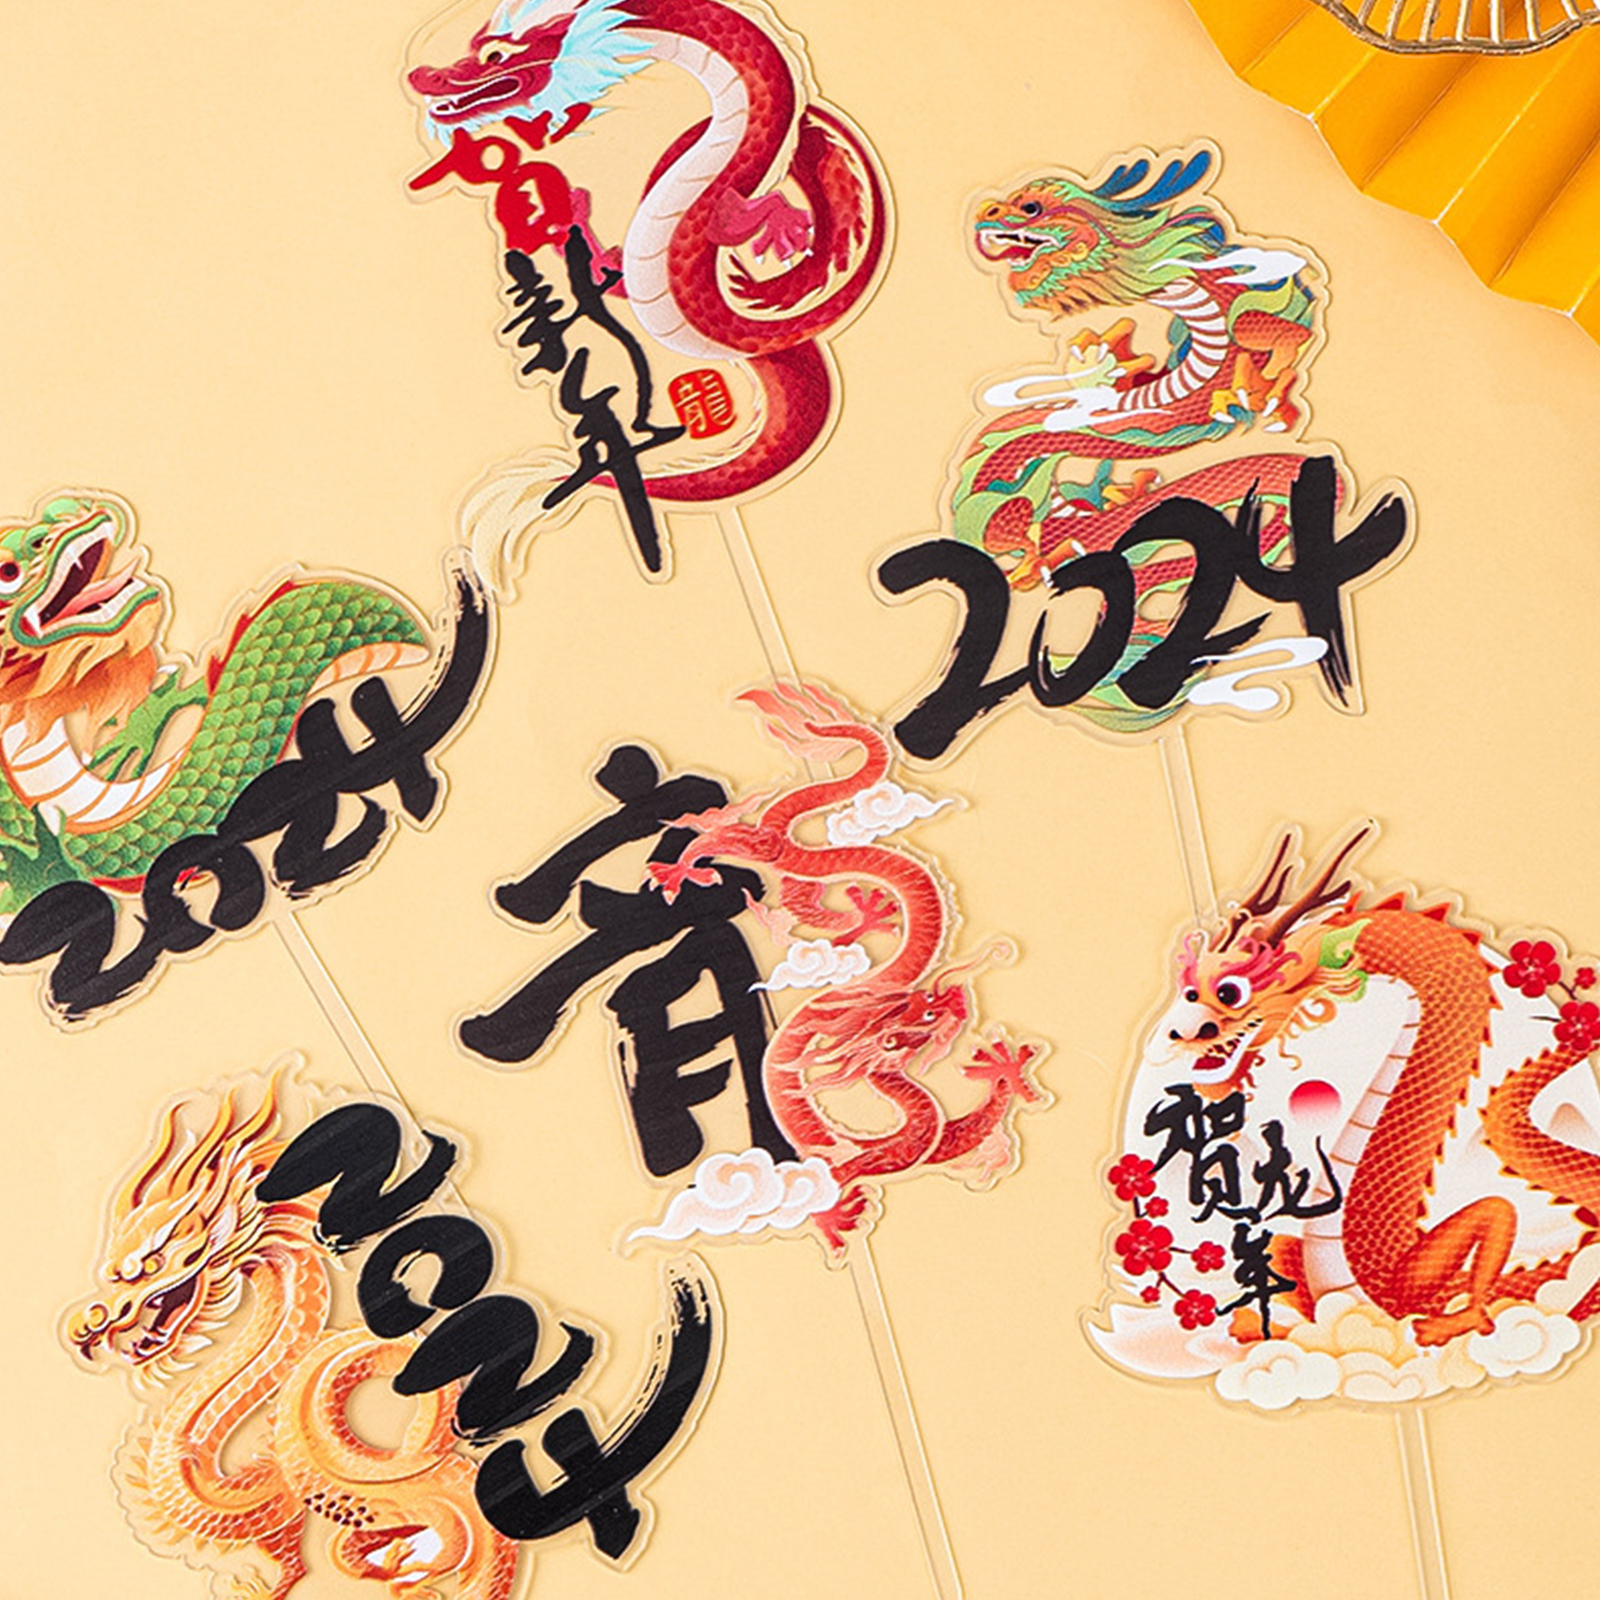 賀
新
年
龍
2024
2024
龍
賀龙
年
2024